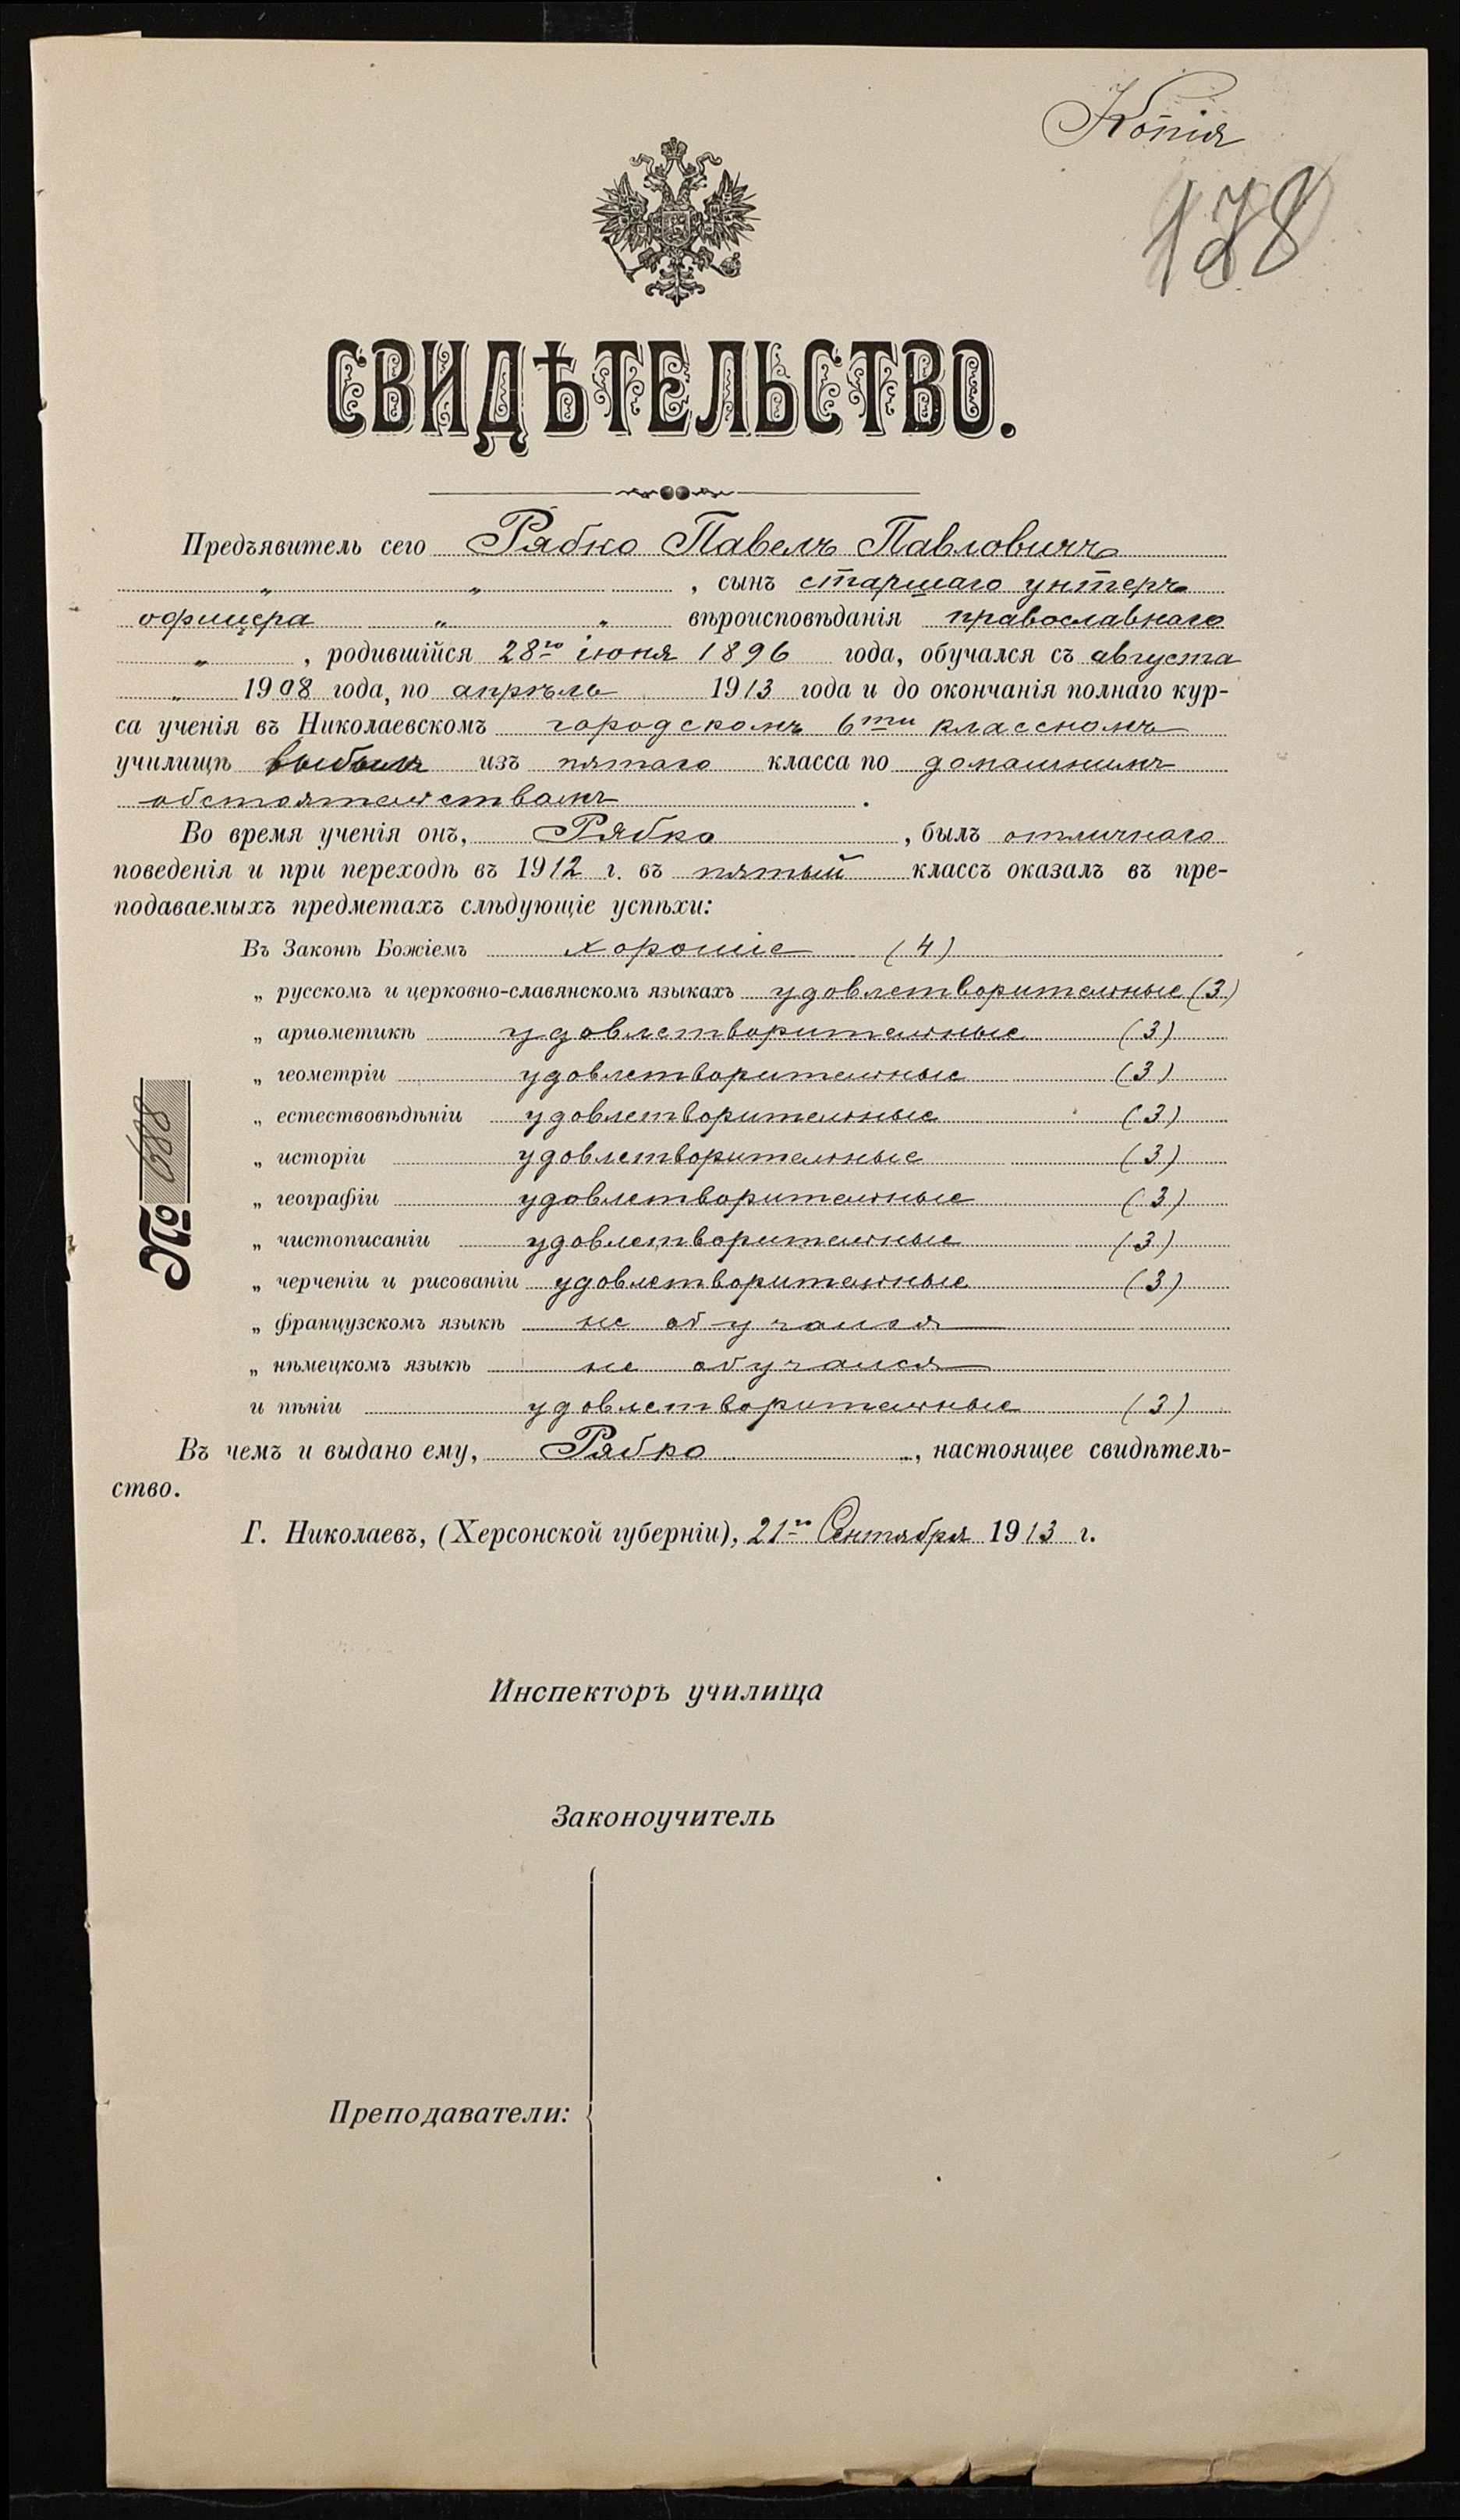 Копія
138
СВИДѢТЕЛЬСТВО.
Предъявитель сего Рябко Павелъ Павловичъ
„ „ , сынъ старшаго унтеръ
офицера „ „ вѣроисповѣданія православнаго
„ , родившійся 28го іюня 1896 года, обучался съ августа
„ 1908 года, по апрѣль 1913 года и до окончанія полнаго кур-
са ученія въ Николаевскомъ городскомъ 6ти классномъ
училищѣ выбылъ изъ пятаго класса по домашнимъ
обстоятельствамъ .
Во время ученія онъ, Рябко , былъ отличнаго
поведенія и при переходѣ въ 1912 г. въ пятый классъ оказалъ въ пре-
подаваемыхъ предметахъ слѣдующіе успѣхи:
Въ Законѣ Божіемъ хорошіе (4)
„ русскомъ и церковно-славянскомъ языкахъ удовлетворительные (3)
„ ариѳметикѣ удовлетворительные (3)
„ геометріи удовлетворительные (3)
„ естествовѣдѣніи удовлетворительные (3)
„ исторіи удовлетворительные (3)
„ географіи удовлетворительные (3)
„ чистописаніи удовлетворительные (3)
„ черченіи и рисованіи удовлетворительные (3)
„ французскомъ языкѣ не обучался
„ нѣмецкомъ языкѣ не обучался
и пѣніи удовлетворительные (3)
№ 688
Въ чемъ и выдано ему, Рябко , настоящее свидѣтель-
ство.
Г. Николаевъ, (Херсонской губерніи), 21го Сентября 1913 г.
Инспекторъ училища
Законоучитель
Преподаватели: